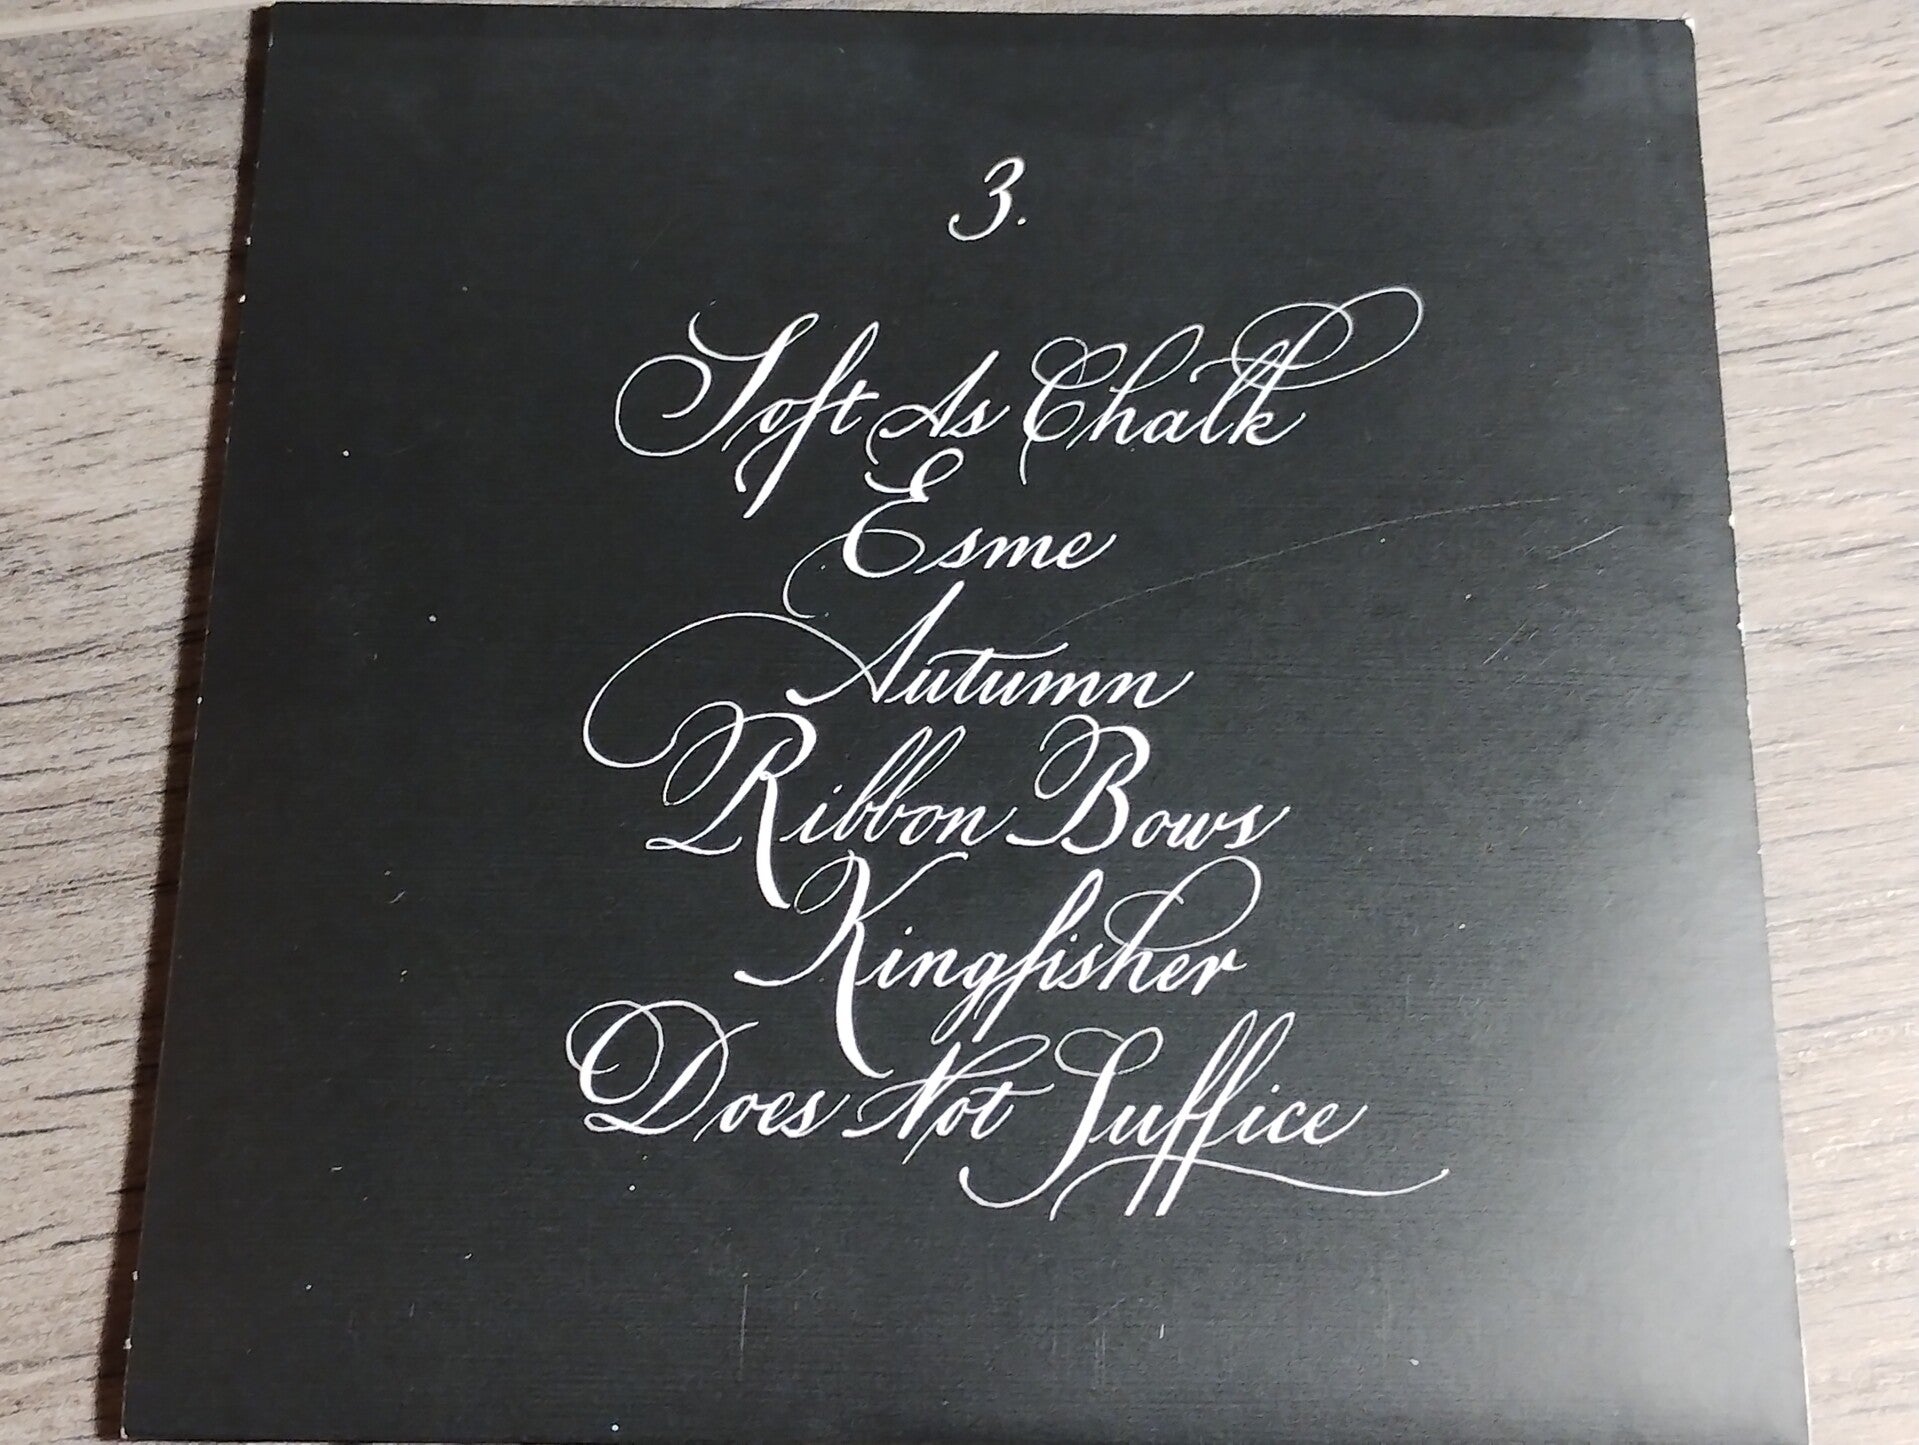 3.
Soft As Chalk
Esme
Autumn
Ribbon Bows
Kingfisher
Does Not Suffice